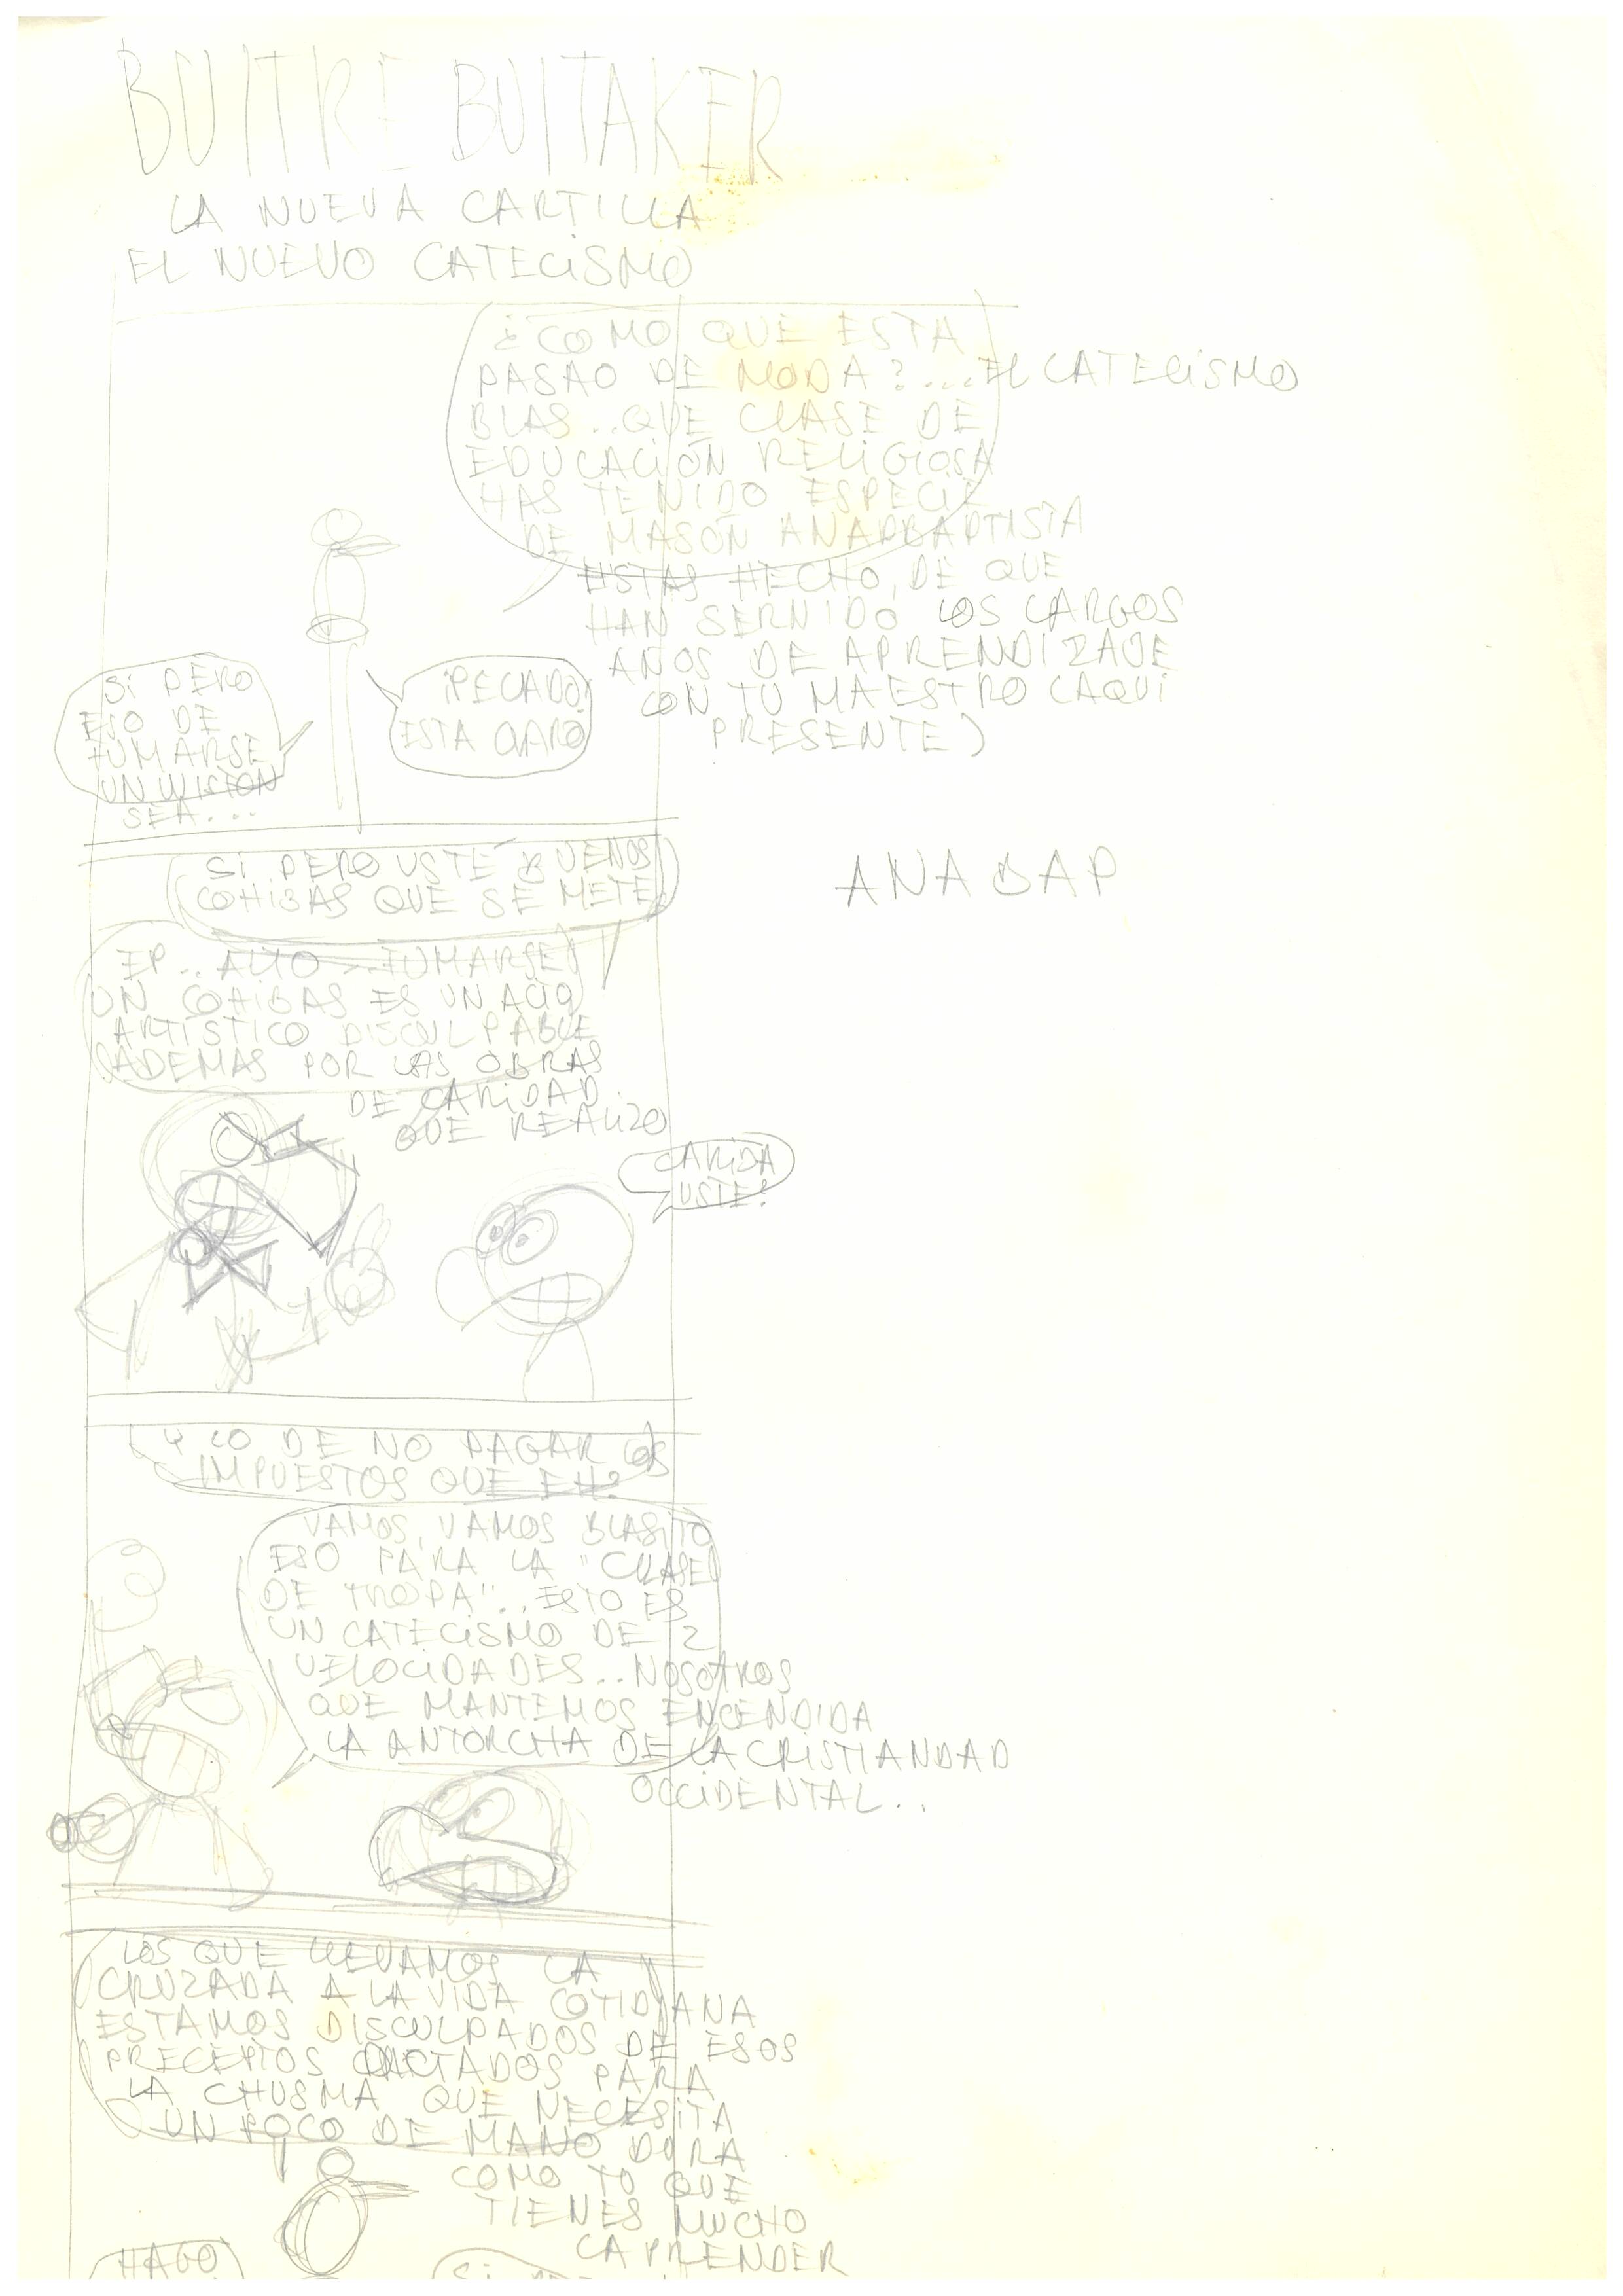 BUITRE BUITAKER
LA NUEVA CARTILLA
EL NUEVO CATECISMO
¿COMO QUE ESTA
PASAO DE MODA?... EL CATECISMO
BLAS.. QUE CLASE DE
EDUCACIÓN RELIGIOSA
HAS TENIDO ESPECIE
DE MASON ANABBAPTISTA
ESTAS HECHO, DE QUE
HAN SERVIDO LOS LARGOS
AÑOS DE APRENDIZAJE
CON TU MAESTRO (AQUI
PRESENTE)
SI PERO
ESO DE
FUMARSE
UN WISTON
SEA....
¡PECADO!
ESTA CLARO
SI PERO USTE BUENOS
COHIBAS QUE SE METE
EP.. ALTO FUMARSE
UN COHIBAS ES UN ACTO
ARTISTICO DISCULPABLE
ADEMAS POR LAS OBRAS
DE CARIDAD
QUE REALIZO
CARIDA
USTE?
ANABAP
Y LO DE NO PAGAR LOS
IMPUESTOS QUE EH?
VAMOS, VAMOS BLASITO
ESO PARA LA "CLASE
DE TROPA".. ESTO ES
UN CATECISMO DE 2
VELOCIDADES.. NOSOTROS
QUE MANTEMOS ENCENDIDA
LA ANTORCHA DE LA CRISTIANDAD
OCCIDENTAL..
LOS QUE LLEVAMOS LA
CRUZADA A LA VIDA COTIDIANA
ESTAMOS DISCULPADOS DE ESOS
PRECEPTOS DICTADOS PARA
LA CHUSMA QUE NECESITA
UN POCO DE MANO DURA
COMO TU QUE
TIENES MUCHO
CAPRENDER
HAGO